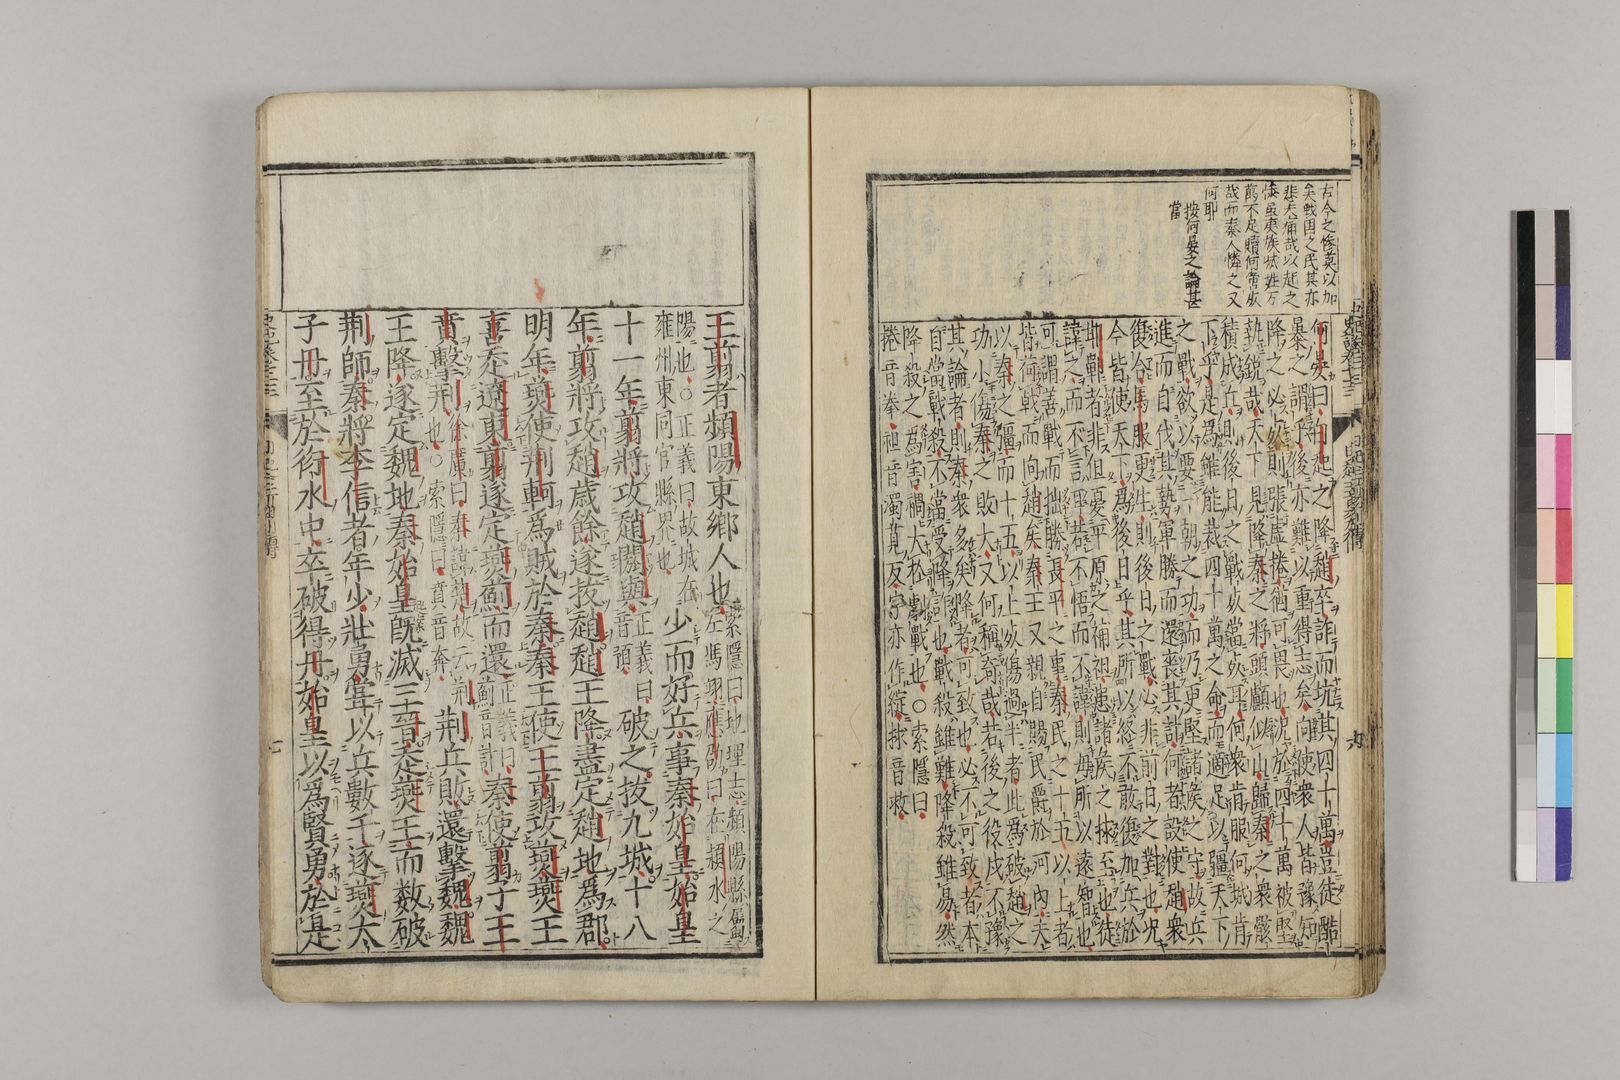 古今之慘莫以加
矣戰国之民其亦
悲夫痛哉以起之
後虽夷族
萬不足贖何啻收
哉而秦人憐之又
何耶
按何晏之論甚
當
何晏曰白起之降趙卒詐而坑其四十萬豈徒酷
暴之謂乎後亦難以重得志矣向使衆人皆豫知
降之必死則張虛捲猶可畏也况於四十萬被堅
執銳哉天下見降秦之將頭顱似山歸秦之衆骸
積成丘則後日之戰死當死耳何衆肯服何城肯
下乎是爲雖能裁四十萬之命而適足以彊天下
之戰欲以要一朝之功而乃更堅諸侯之守故兵
進而自伐其勢軍勝而還喪其計何者設使趙衆
復合馬服更生則後日之戰必非前日之對也况
今皆使天下爲後日乎其所以終不敢復加兵於
邯鄲者非但憂平原之補袒患諸侯之捄至也徒
諱之而不言耳若不悟而不諱則毋所以遠智也
可謂善戰而拙勝長平之事秦民之十五以上者
皆荷戟而向趙矣秦王又親自賜民爵於河內夫
以秦之彊而十五以上死傷過半者此爲破趙之
功小傷秦之敗大又何稱奇哉若後之役戍不豫
其論者則秦衆多矣降者可致也必不可致者本
自當戰殺不當受降詐也戰殺雖難降殺雖易然
降殺之爲害禍大於劇戰也○索隱曰
捲音拳袒音濁莧反字亦作綻捄音救
王翦者頻陽東鄉人也索隱曰地理志頻陽縣屬
左馮翊應劭曰在頻水之
陽也○正義曰故城在
雍州東同官縣界也少而好兵事秦始皇始皇
十一年翦將攻趙閼與正義曰
音預破之拔九城十八
年翦將攻趙歲餘遂拔趙趙王降盡定趙地爲郡
明年燕使荆軻爲賊於秦秦王使王翦攻燕燕王
喜走遼東翦遂定燕薊而還正義曰
薊音計秦使翦子王
賁擊荆徐廣曰秦諱楚故云荆
也○索隱曰賁音奔荆兵敗還擊魏魏
王降遂定魏地秦始皇既滅三晉走燕王而数破
荆師秦將李信者年少壯勇嘗以兵數千逐燕太
子丹至於衍水中卒破得丹始皇以爲賢勇於是